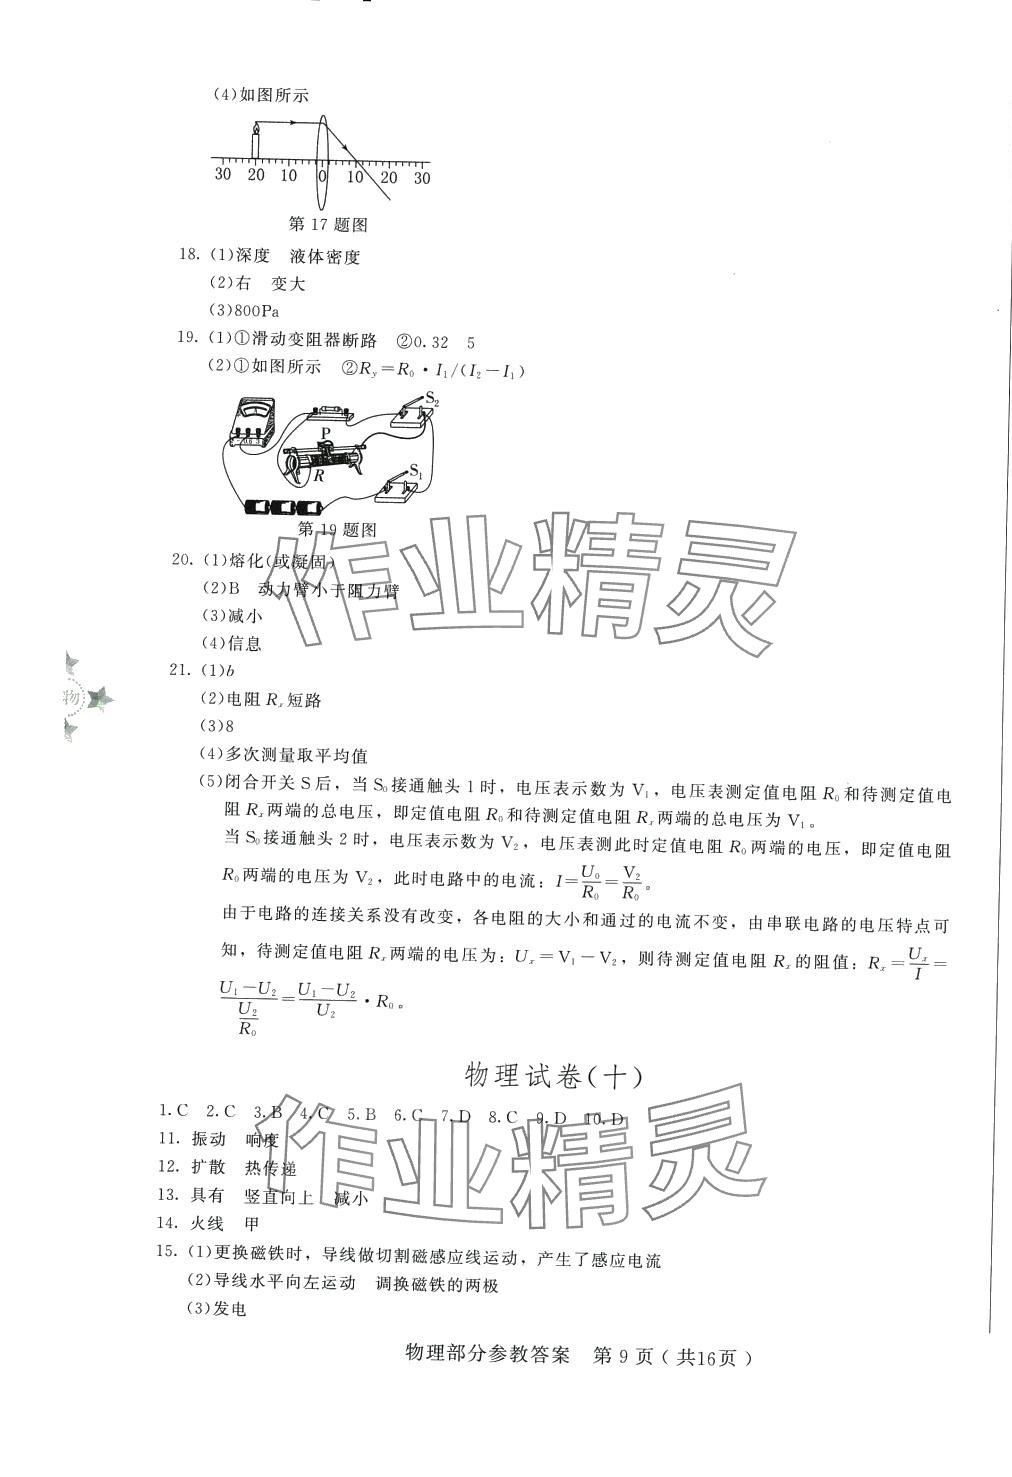 (4)如图所示
30 20 10 0 10 20 30
第17题图
18. (1)深度 液体密度
(2)右 变大
(3)800Pa
19. (1)①滑动变阻器断路 ②0.32 5
(2)①如图所示 ②Ry=R0·I1/(I2-I1)
S2
P
R
S1
第19题图
20. (1)熔化(或凝固)
(2)B 动力臂小于阻力臂
(3)减小
(4)信息
21. (1)b
(2)电阻Rx短路
(3)8
(4)多次测量取平均值
(5)闭合开关S后，当S0接通触头1时，电压表示数为V1，电压表测定值电阻R0和待测定值电
阻Rx两端的总电压，即定值电阻R0和待测定值电阻Rx两端的总电压为V1。
当S0接通触头2时，电压表示数为V2，电压表测此时定值电阻R0两端的电压，即定值电阻
R0两端的电压为V2，此时电路中的电流：I=U0/R0=V2/R0。
由于电路的连接关系没有改变，各电阻的大小和通过的电流不变，由串联电路的电压特点可
知，待测定值电阻Rx两端的电压为：Ux=V1-V2，则待测定值电阻Rx的阻值：Rx=Ux/I=
(U1-U2)/(U2/R0)=(U1-U2)/U2·R0。
物理试卷(十)
1.C 2.C 3.B 4.C 5.B 6.C 7.D 8.C 9.D 10.D
11. 振动 响度
12. 扩散 热传递
13. 具有 竖直向上 减小
14. 火线 甲
15. (1)更换磁铁时，导线做切割磁感应线运动，产生了感应电流
(2)导线水平向左运动 调换磁铁的两极
(3)发电
物理部分参教答案 第9页(共16页)
物
作业精灵
作业精灵